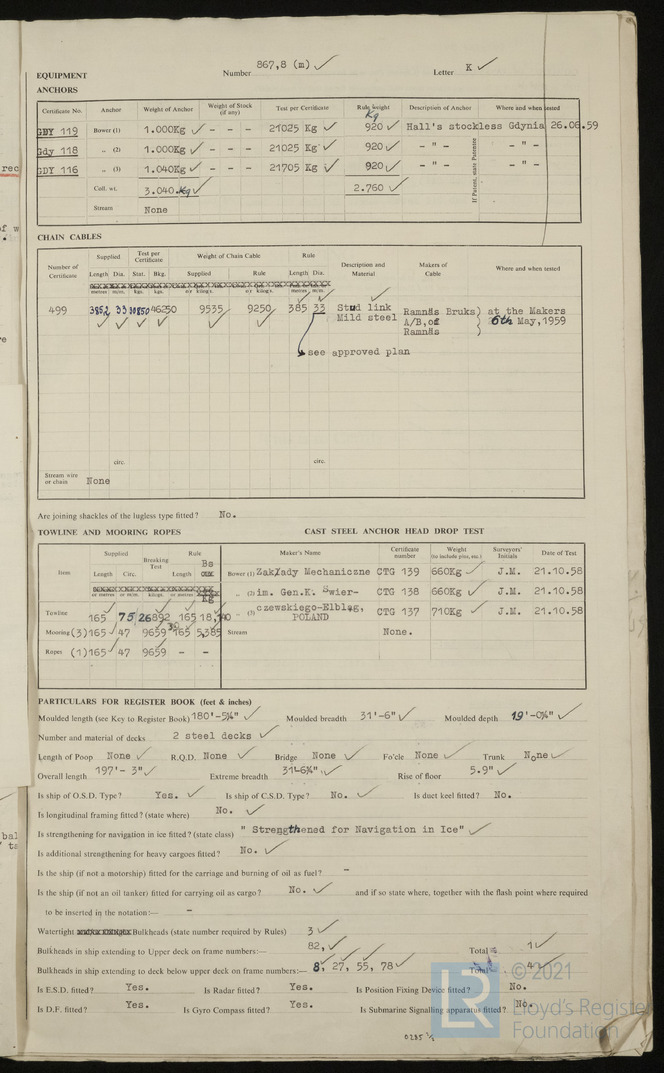 EQUIPMENT Number 867,8 (m) Letter K
ANCHORS
Certificate No. Anchor Weight of Anchor Weight of Stock (if any) Test per Certificate Rule weight Kg Description of Anchor Where and when tested
GDY 119 Bower (1) 1.000Kg - - - 21025 Kg 920 Hall's stockless Gdynia 26.06.59
Gdy 118 „ (2) 1.000Kg - - - 21025 Kg 920 - " - - " -
GDY 116 „ (3) 1.040Kg - - - 21705 Kg 920 - " - - " -
If Patent, state Patentee
Coll. wt. 3.040.Kg 2.760
Stream None
CHAIN CABLES
Number of Certificate Supplied Test per Certificate Weight of Chain Cable Rule Description and Material Makers of Cable Where and when tested
Length Dia. Stat. Bkg. Supplied Rule Length Dia.
metres m/m. kgs. kgs. or kings. or kings. metres m/m.
499 385,2 33 30850 46250 9535 9250 385 33 Stud link Ramnäs Bruks) at the Makers
Mild steel A/B, of ) 6th May,1959
Ramnäs )
see approved plan
circ. circ.
Stream wire or chain None
Are joining shackles of the lugless type fitted? No.
TOWLINE AND MOORING ROPES CAST STEEL ANCHOR HEAD DROP TEST
Item Supplied Breaking Test Rule Bs Maker's Name Certificate number Weight (to include pins, etc.) Surveyors' Initials Date of Test
Length Circ. Length
or metres or m/m. kings. or metres Kg
Bower (1) Zakłady Mechaniczne CTG 139 660Kg J.M. 21.10.58
„ (2) im. Gen.K. Swier- CTG 138 660Kg J.M. 21.10.58
Towline 165 75 26892 165 18,140 „ (3) czewskiego-Elbląg, POLAND CTG 137 710Kg J.M. 21.10.58
Mooring (3) 165 47 9659 165 5,385 Stream None.
Ropes (1) 165 47 9659 - -
PARTICULARS FOR REGISTER BOOK (feet & inches)
Moulded length (see Key to Register Book) 180'-5¼" Moulded breadth 31'-6" Moulded depth 19'-0¼"
Number and material of decks 2 steel decks
Length of Poop None R.Q.D. None Bridge None Fo'cle None Trunk None
Overall length 197'- 3" Extreme breadth 31'-6¾" Rise of floor 5.9"
Is ship of O.S.D. Type? Yes. Is ship of C.S.D. Type? No. Is duct keel fitted? No.
Is longitudinal framing fitted? (state where) No.
Is strengthening for navigation in ice fitted? (state class) " Strengthened for Navigation in Ice"
Is additional strengthening for heavy cargoes fitted? No.
Is the ship (if not a motorship) fitted for the carriage and burning of oil as fuel? -
Is the ship (if not an oil tanker) fitted for carrying oil as cargo? No. and if so state where, together with the flash point where required
to be inserted in the notation:— -
Watertight Bulkheads (state number required by Rules) 3
Bulkheads in ship extending to Upper deck on frame numbers:— 82, Total 1
Bulkheads in ship extending to deck below upper deck on frame numbers:— 8, 27, 55, 78 Total 4
Is E.S.D. fitted? Yes. Is Radar fitted? Yes. Is Position Fixing Device fitted? No.
Is D.F. fitted? Yes. Is Gyro Compass fitted? Yes. Is Submarine Signalling apparatus fitted? No.
LR © 2021
Lloyd's Register
Foundation